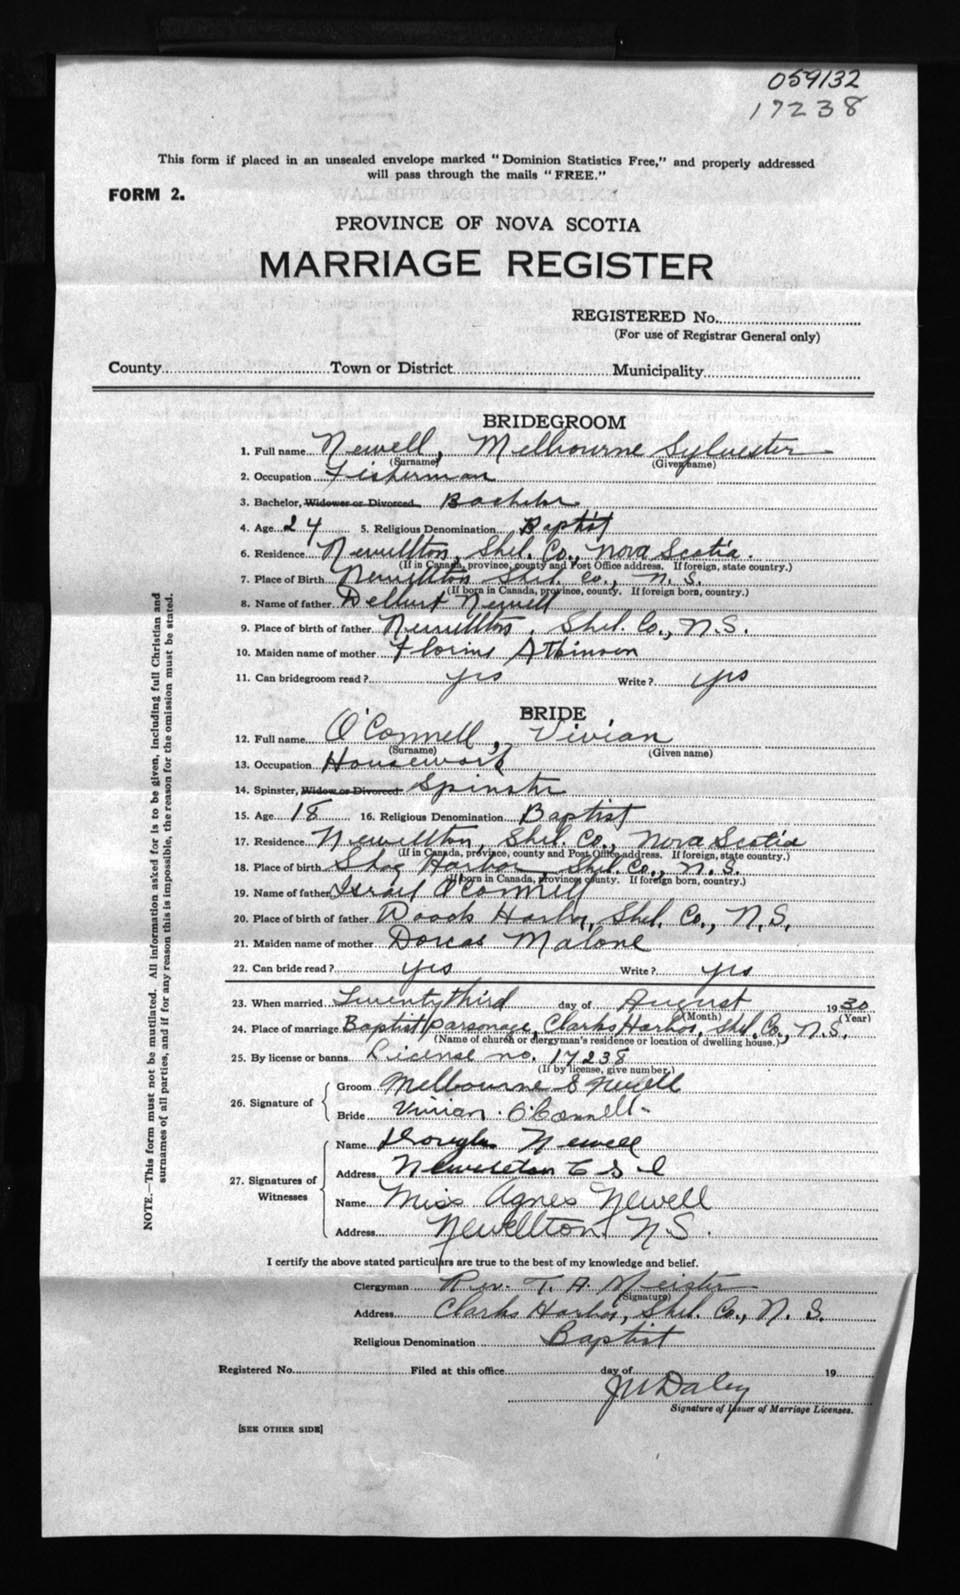 059132
17238
This form if placed in an unsealed envelope marked "Dominion Statistics Free," and properly addressed
will pass through the mails "FREE."
FORM 2.
PROVINCE OF NOVA SCOTIA
MARRIAGE REGISTER
REGISTERED No.
(For use of Registrar General only)
County Town or District Municipality
BRIDEGROOM
1. Full name Newell, Melbourne Sylvester
(Surname) (Given name)
2. Occupation Fisherman
3. Bachelor, Widower or Divorced Bachelor
4. Age 24 5. Religious Denomination Baptist
6. Residence Newellton, Shel. Co., Nova Scotia.
(If in Canada, province, county and Post Office address. If foreign, state country.)
7. Place of Birth Newellton Shel. Co., N. S.
(If born in Canada, province, county. If foreign born, country.)
8. Name of father Delbert Newell
9. Place of birth of father Newellton, Shel. Co., N.S.
10. Maiden name of mother Atkinson
11. Can bridegroom read? yes Write? yes
BRIDE
12. Full name O'Connell, Vivian
(Surname) (Given name)
13. Occupation Housework
14. Spinster, Widow or Divorced Spinster
15. Age 18 16. Religious Denomination Baptist
17. Residence Newellton, Shel. Co., Nova Scotia
(If in Canada, province, county and Post Office address. If foreign, state country.)
18. Place of birth Shag Harbor Shel. Co., N. S.
(If born in Canada, province county. If foreign born, country.)
19. Name of father Israel O'Connell
20. Place of birth of father Woods Harbor, Shel. Co., N.S.
21. Maiden name of mother Dorcas Malone
22. Can bride read? yes Write? yes
23. When married Twenty third day of August 1930
(Month) (Year)
24. Place of marriage Baptist Parsonage, Clarks Harbor, Shel. Co., N.S.
(Name of church or clergyman's residence or location of dwelling house.)
25. By license or banns License no. 17238
(If by license, give number.)
26. Signature of Groom Melbourne S Newell
Bride Vivian O'Connell
27. Signatures of Witnesses Name Douglas Newell
Address Newellton C S I
Name Miss Agnes Newell
Address Newellton N.S.
I certify the above stated particulars are true to the best of my knowledge and belief.
Clergyman Rev. T. A. Meister
(Signature)
Address Clarks Harbor, Shel. Co., N. S.
Religious Denomination Baptist
Registered No. Filed at this office day of 19
Daley
Signature of Issuer of Marriage Licenses.
[SEE OTHER SIDE]
NOTE.—This form must not be mutilated. All information asked for is to be given, including full Christian and
surnames of all parties, and if for any reason this is impossible, the reason for the omission must be stated.